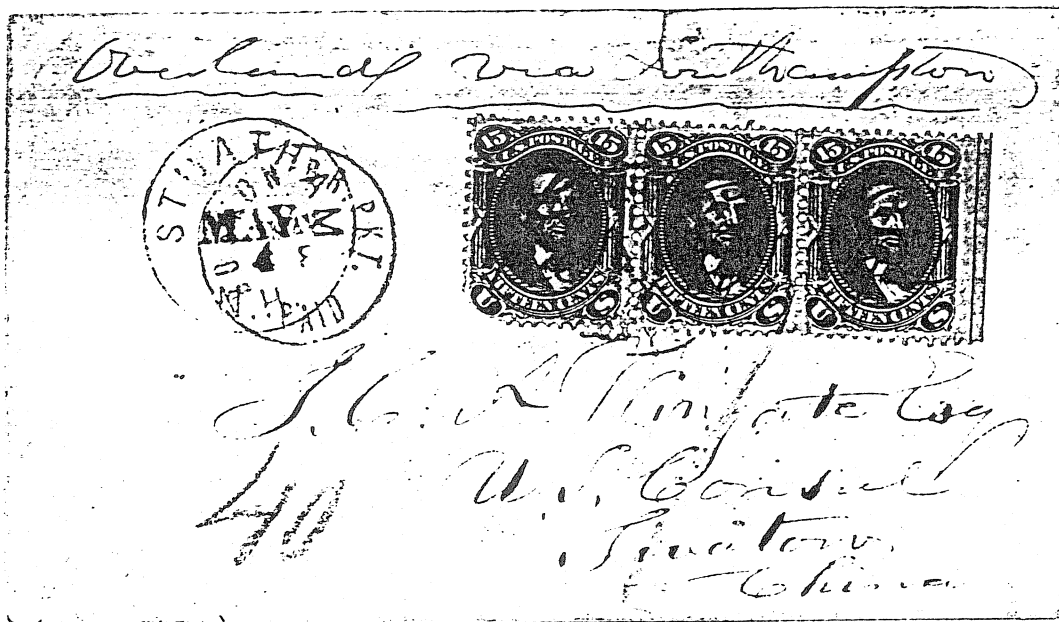 Overland via Southampton
15 U.S. POSTAGE 15
FIFTEEN CENTS
U S
15 U.S. POSTAGE 15
FIFTEEN CENTS
U S
15 U.S. POSTAGE 15
FIFTEEN CENTS
U S
PKT.
MAR
J. C. A. Wingate Esq
U. S. Consul
Swatow
China
40